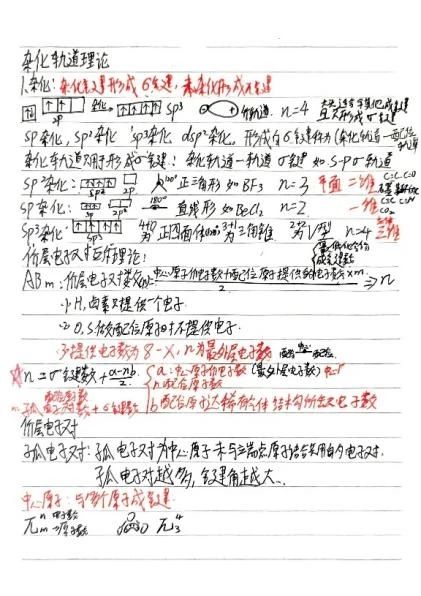 杂化轨道理论
1.杂化: 杂化轨道形成σ键, 未杂化形成π键
杂化 sp³ 轨道. n=4 只形成σ键
sp杂化, sp²杂化 sp³杂化 dsp²杂化. 形成的σ键
杂化轨道只用于形成σ键! 杂化轨道一轨道 σ键 如 s-pσ轨道
sp²杂化: 2p 120° 正三角形 如BF₃ n=3 平面 二维 C=C C=O
sp杂化: sp 2p² 180° 直线形 如BeCl₂ n=2 一维 C≡C C≡N CO₂
sp³杂化 4+0为正四面体 3+1为三角锥 2+2为V型 n=4 三维
价层电子对互斥理论:
ABm: 价层电子对数 = 中心原子价电子数+配位原子提供的电子数×m / 2 ⇒ n
·1.H,卤素只提供一个电子
·2.O,S做配位原子时不提供电子
·3.提供电子数为8-X, 为最外层电子数
☆ n=σ键电子对数+ a-nb/2 { a: 中心原子价电子数 (最外层电子数)
n 配位原子数
= 孤电子对数+σ键数 b 配位原子达稀有气体结构所需电子数
价层电子对
孤电子对: 孤电子对为中心原子未与端点原子结合共用的电子对.
孤电子对越多, 键角越大...
中心原子: 与多个原子成键
π n 电子数 m→原子数 π₃⁴